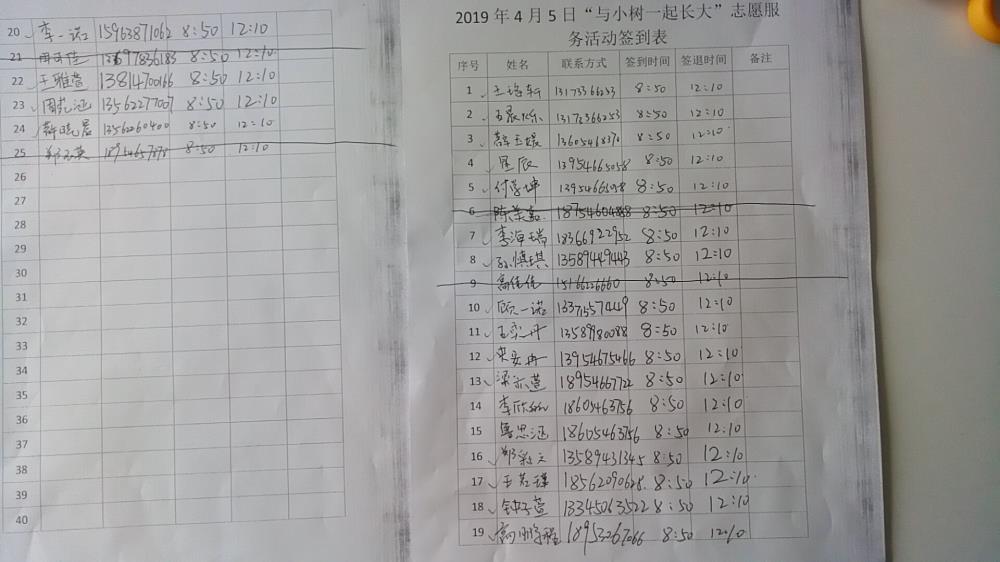 20 李一诺 15963871062 8:50 12:10
21 8:50 12:10
22 王雅萱 13814700166 8:50 12:10
23 周艺涵 13562277007 8:50 12:10
24 薛晓晨 13562260400 8:50 12:10
25 郑玉英 8:50 12:10
26
27
28
29
30
31
32
33
34
35
36
37
38
39
40
2019年4月5日“与小树一起长大”志愿服
务活动签到表
序号 姓名 联系方式 签到时间 签退时间 备注
1 13173366253 8:50 12:10
2 13173366253 8:50 12:10
3 薛玉媛 13605468370 8:50 12:10
4 星辰 13954665058 8:50 12:10
5 付学坤 8:50 12:10
6 陈荣嘉 18754604888 8:50 12:10
7 李海瑞 18366922952 8:50 12:10
8 孙慎琪 13589449443 8:50 12:10
9 高佳佳 15166226660 8:50 12:10
10 顾一诺 13371557449 8:50 12:10
11 王奕丹 13589980088 8:50 12:10
12 宋安冉 13954675466 8:50 12:10
13 梁亦萱 18954667722 8:50 12:10
14 李欣 18605463756 8:50 12:10
15 鲁思涵 18605463756 8:50 12:10
16 郑彩文 13589431345 8:50 12:10
17 王艺瑾 18562090628 8:50 12:10
18 钟子萱 13345063522 8:50 12:10
19 高刚程 18953267066 8:50 12:10